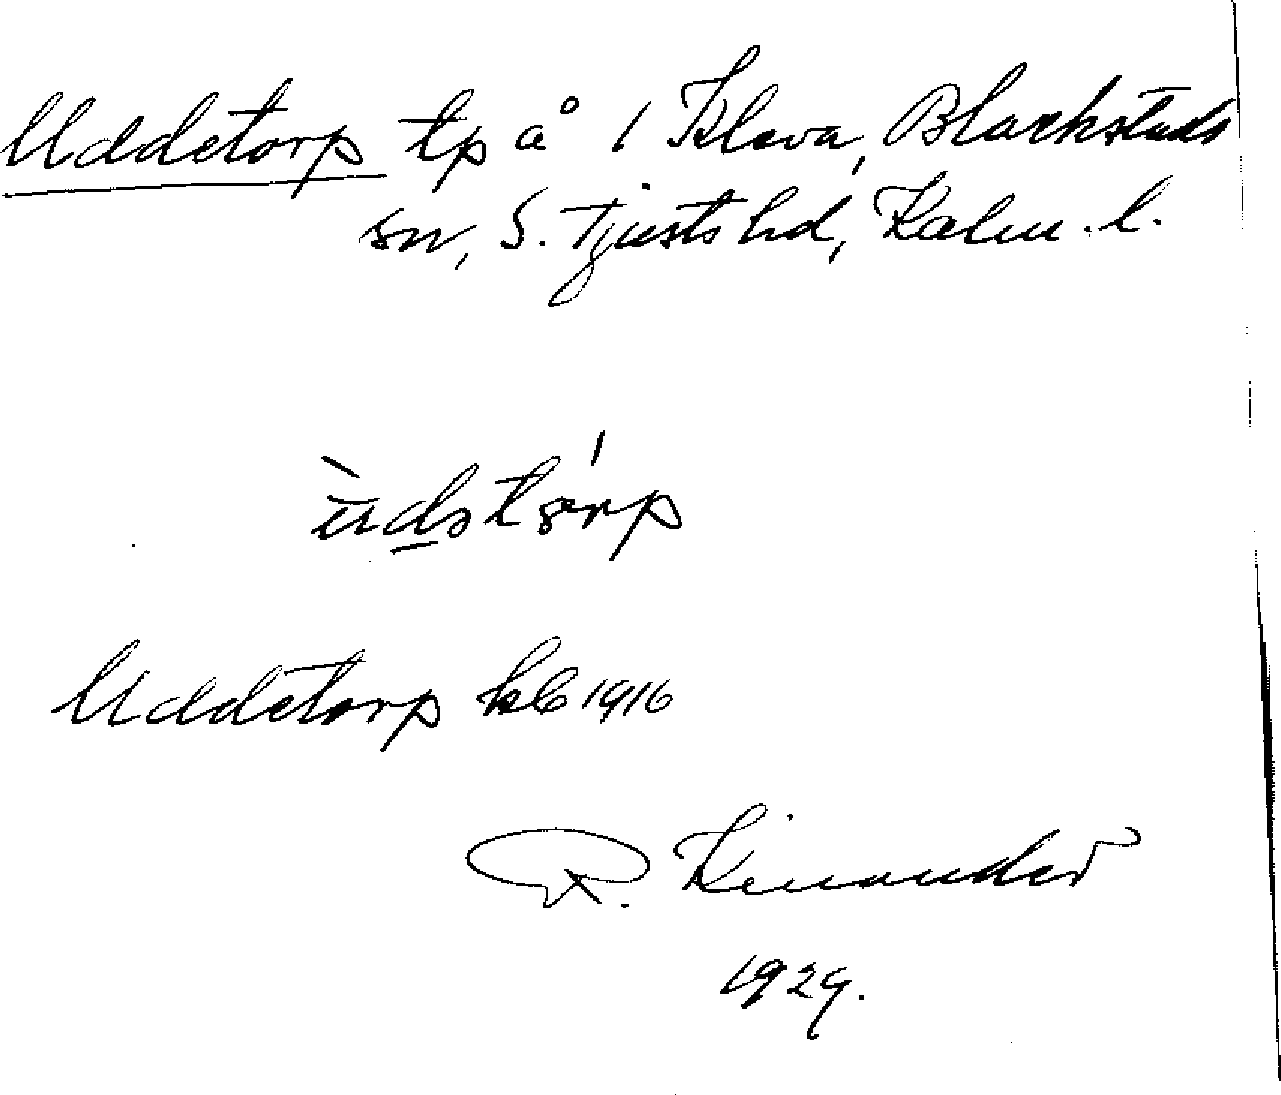 Uddetorp tp å 1 Kleva, Blackstads
sn, S. Tjusts hd, Kalm. l.
Uddetorp kb 1916
R. Kinander
1929.